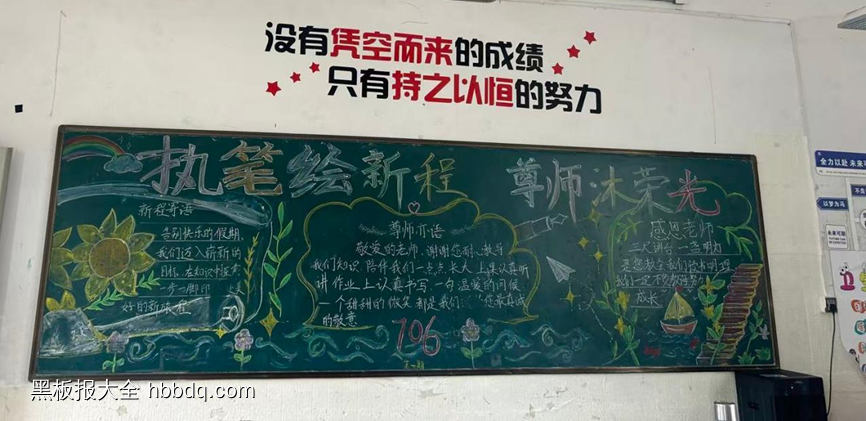 没有凭空而来的成绩
只有持之以恒的努力
执笔绘新程 尊师沐荣光
新程寄语
告别快乐的假期,
我们迈入崭新的
目标,在知识中探索
一步一脚印
好的新旅程
尊师亦语
敬爱的老师,谢谢您耐心教导
我们知识 陪伴我们一点点长大 上课认真听
讲 作业上认真书写 一句温暖的问候
一个甜甜的微笑 都是我们 您最真诚
的敬意
706
感恩老师
三尺讲台 一盏明灯
是您教会我们
我们一定不
成长
全力以赴
以梦为马
黑板报大全 hbbdq.com